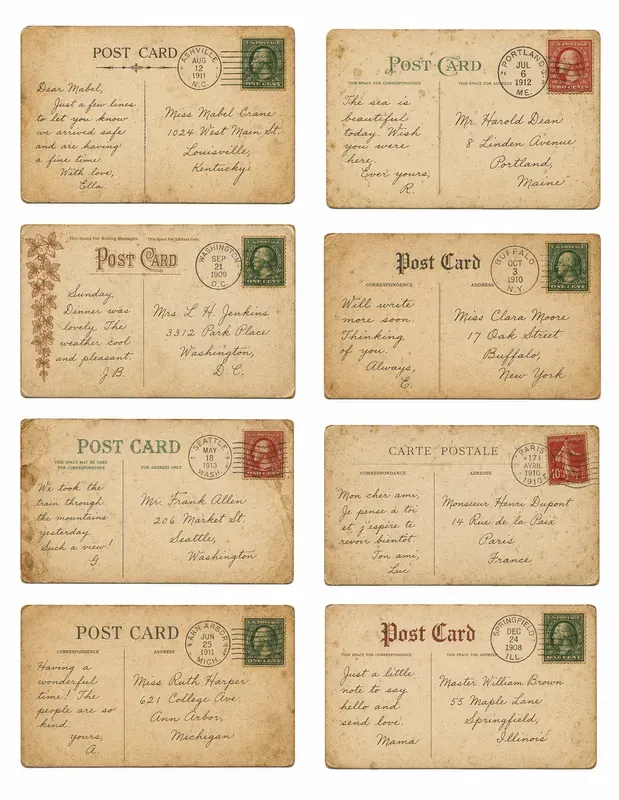 POST CARD
ASHVILLE
AUG
12
1911
N.C.
U.S. POSTAGE
ONE CENT
Dear Mabel,
Just a few lines
to let you know
we arrived safe
and are having
a fine time.
With love,
Ella.
Miss Mabel Crane
1024 West Main St.
Louisville,
Kentucky
POST CARD
THIS SPACE FOR CORRESPONDENCE
THIS SPACE FOR ADDRESS
PORTLAND
JUL
6
1912
ME.
U.S. POSTAGE
TWO CENTS
The sea is
beautiful
today. Wish
you were
here.
Ever yours,
R.
Mr. Harold Dean
8 Linden Avenue
Portland,
Maine
This Space For Writing Messages.
This Space For Address Only.
POST CARD
WASHINGTON
SEP
21
1909
D.C.
U.S. POSTAGE
ONE CENT
Sunday
Dinner was
lovely. The
weather cool
and pleasant.
J.B.
Mrs. L. H. Jenkins
3312 Park Place
Washington,
D.C.
Post Card
CORRESPONDENCE
ADDRESS
BUFFALO
OCT
3
1910
N.Y.
U.S. POSTAGE
ONE CENT
Will write
more soon.
Thinking
of you.
Always,
E.
Miss Clara Moore
17 Oak Street
Buffalo,
New York
POST CARD
THIS SPACE MAY BE USED
FOR CORRESPONDENCE
FOR ADDRESS ONLY
SEATTLE
MAY
18
1913
WASH
U.S. POSTAGE
TWO CENTS
We took the
train through
the mountains
yesterday.
Such a view!
G.
Mr. Frank Allen
206 Market St.
Seattle,
Washington
CARTE POSTALE
CORRESPONDANCE
ADRESSE
PARIS
17
AVRIL
1910
1910
10
Mon cher ami,
Je pense à toi
et j'espère te
revoir bientôt.
Ton ami,
Luc
Monsieur Henri Dupont
14 Rue de la Paix
Paris
France
POST CARD
CORRESPONDENCE
ADDRESS
ANN ARBOR
JUN
25
1911
MICH.
U.S. POSTAGE
ONE CENT
Having a
wonderful
time! The
people are so
kind.
yours,
A.
Miss Ruth Harper
621 College Ave.
Ann Arbor,
Michigan
Post Card
THIS SPACE FOR CORRESPONDENCE
THIS SPACE FOR ADDRESS
SPRINGFIELD
DEC
24
1908
ILL.
U.S. POSTAGE
ONE CENT
Just a little
note to say
hello and
send love.
Mama
Master William Brown
55 Maple Lane
Springfield,
Illinois